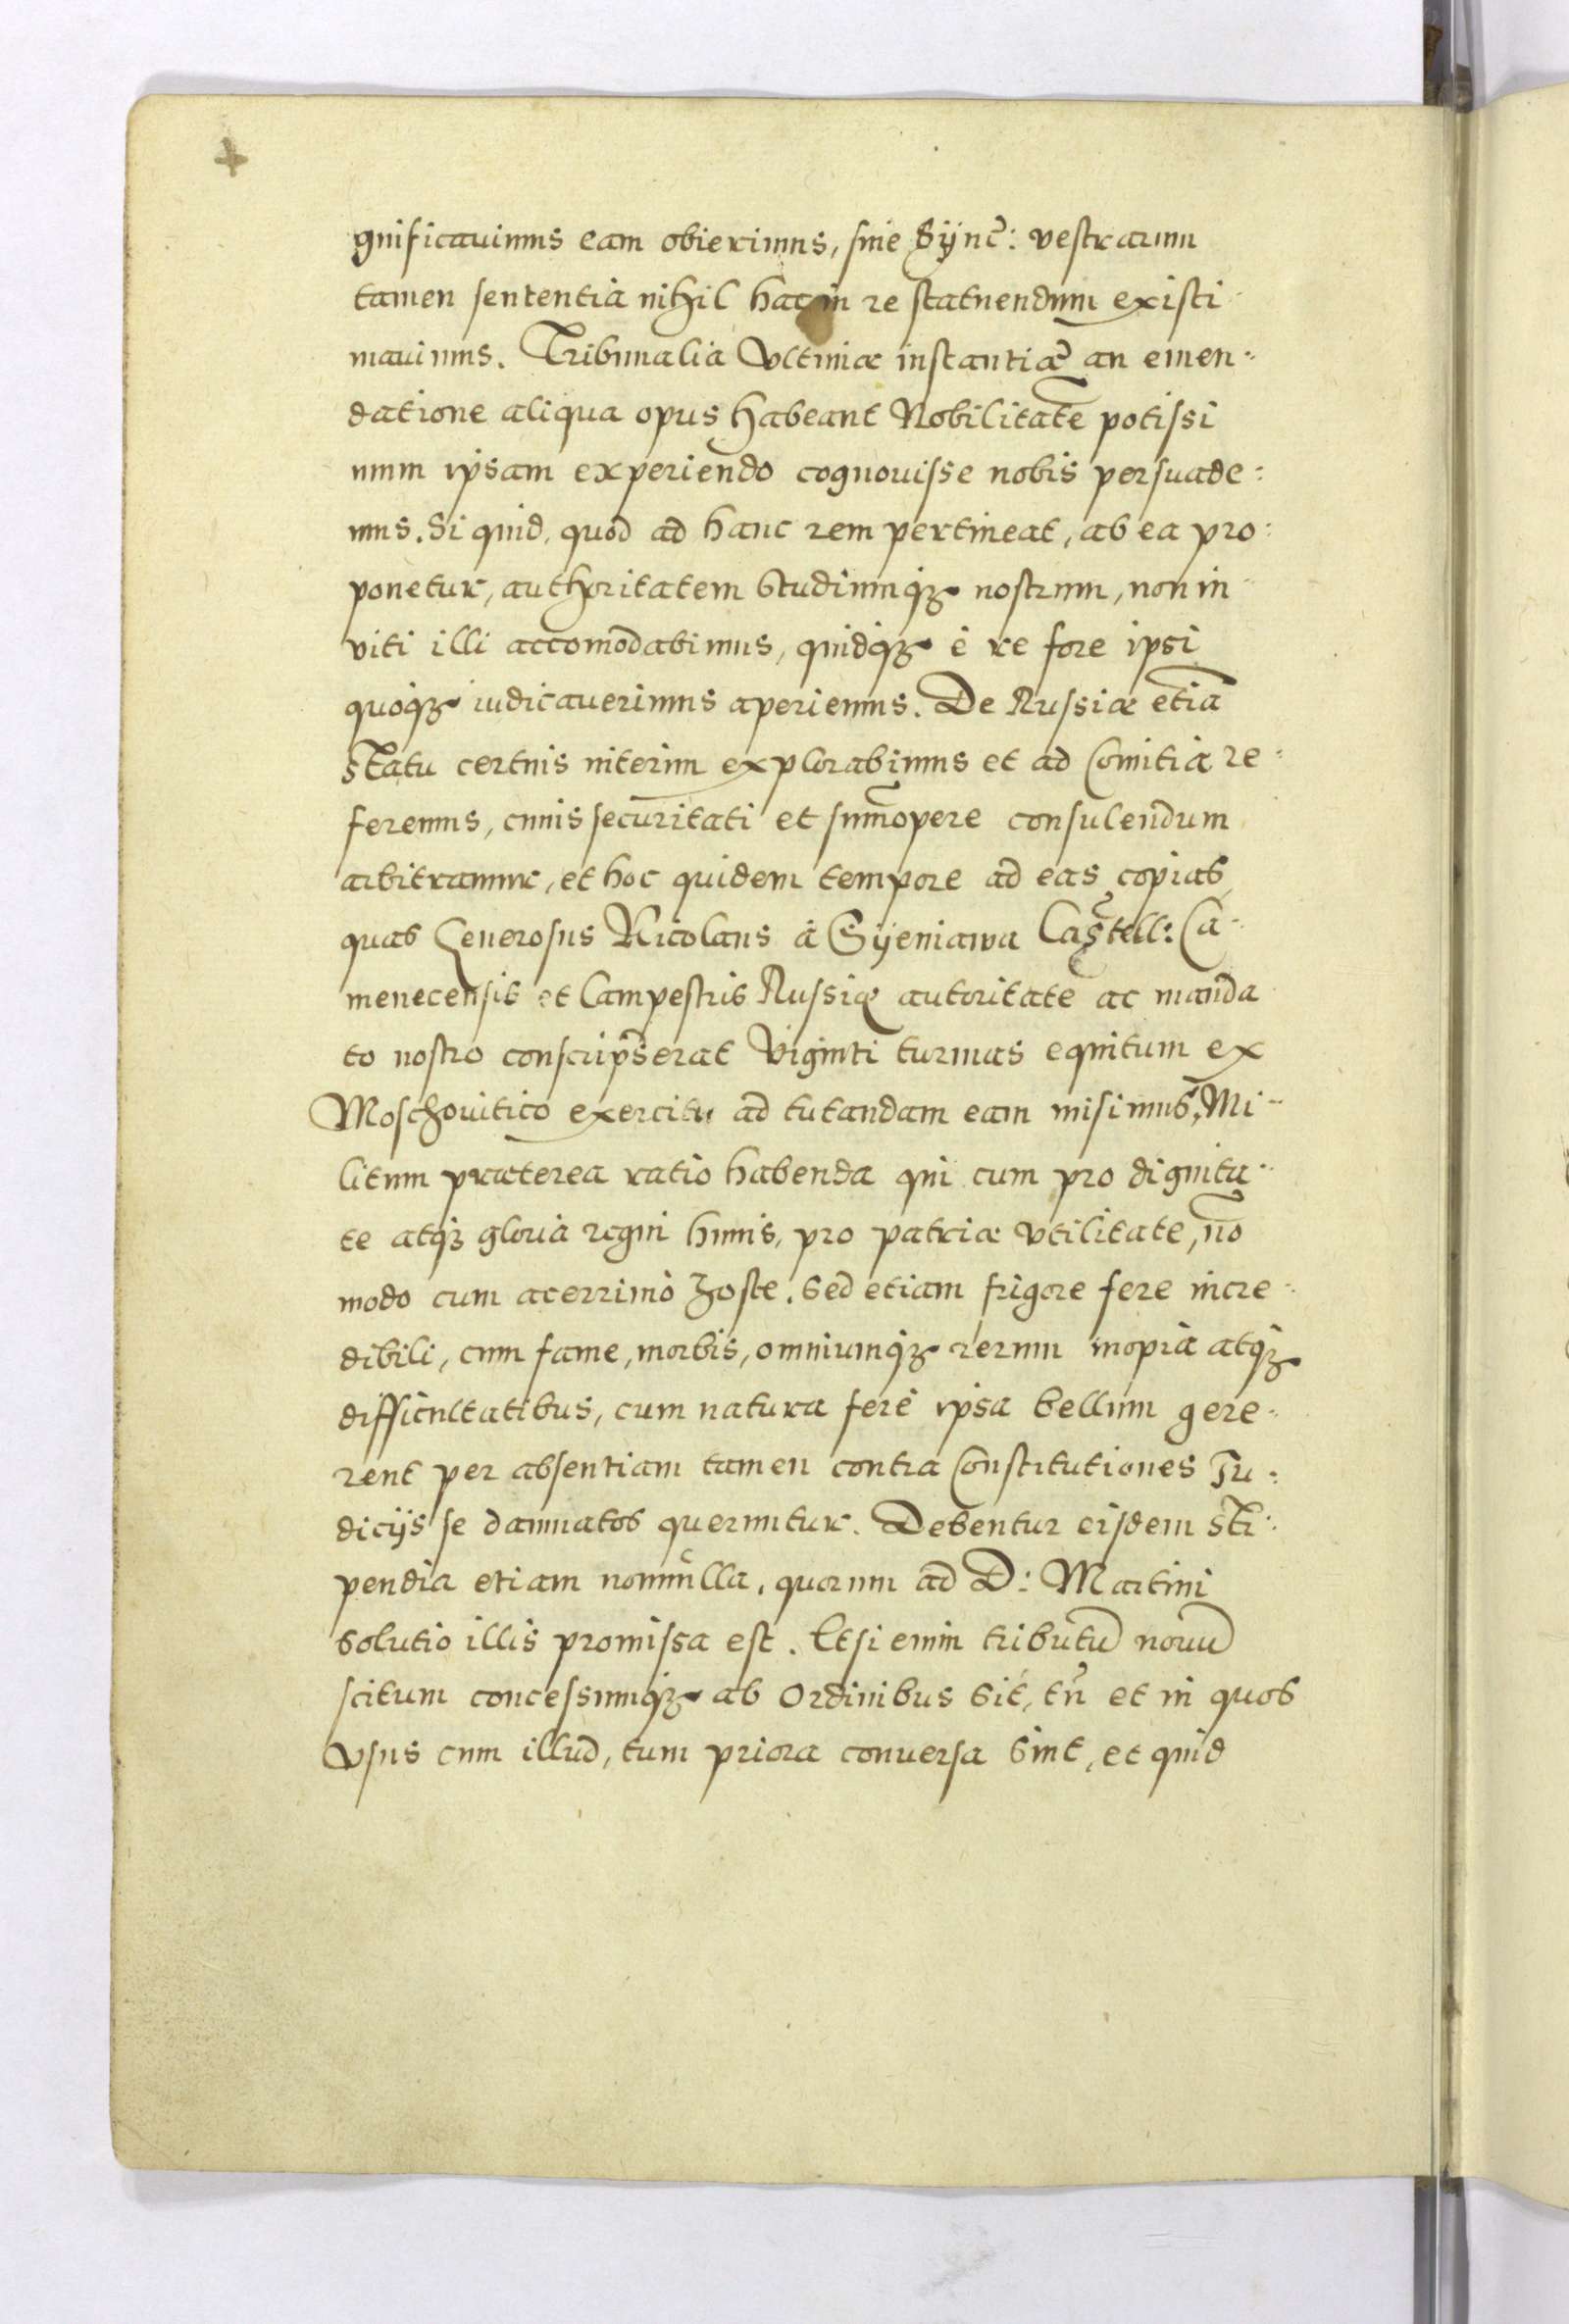 gnificauimus eam obierimus, sine Sÿnc̃: vestrarum
tamen sententia nihil hac in re statuendum existi-
mauimus. Tribunalia Vltimæ instantiæ an emen-
datione aliqua opus habeant Nobilitatē potissi
mum ipsam experiendo cognouisse nobis persuade:
mus. Si quid, quod ad hanc rem pertineat, ab ea pro:
ponetur, authoritatem Studiumqȝ nostrum, non in-
viti illi accom̄odabimus, quidqȝ è re fore ipsi
quoqȝ iudicauerimus aperiemus. De Russiæ etiā
statu certius interim explorabimus et ad Comitia re-
feremus, cuius securitati et sum̄opere consulendum
arbitramur, et hoc quidem tempore ad eas copias
quas Generosus Nicolaus à Sÿeniawa Castell: Ca-
menecensis et Campestris Russiæ autoritate ac manda
to nostro conscripserat Viginti turmas equitum ex
Moschouitico exercitu ad tutandam eam misimus, Mi-
litum præterea ratio habenda qui cum pro dignita-
te atqȝ gloria regni huius, pro patriæ vtilitate, nō
modo cum acerrimo hoste, sed etiam frigore fere incre-
dibili, cum fame, morbis, omniumqȝ rerum inopia atqȝ
difficultatibus, cum natura ferè ipsa bellum gere-
rent per absentiam tamen contra Constitutiones Iu:
dicijs se damnatos queruntur. Debentur eisdem sti-
pendia etiam nonnulla, quorum ad D: Martini
solutio illis promissa est. Etsi enim tributū nouū
scitum concessumqȝ ab Ordinibus sit, tñ et in quos
Vsus cum illud, tum priora conuersa sint, et quid